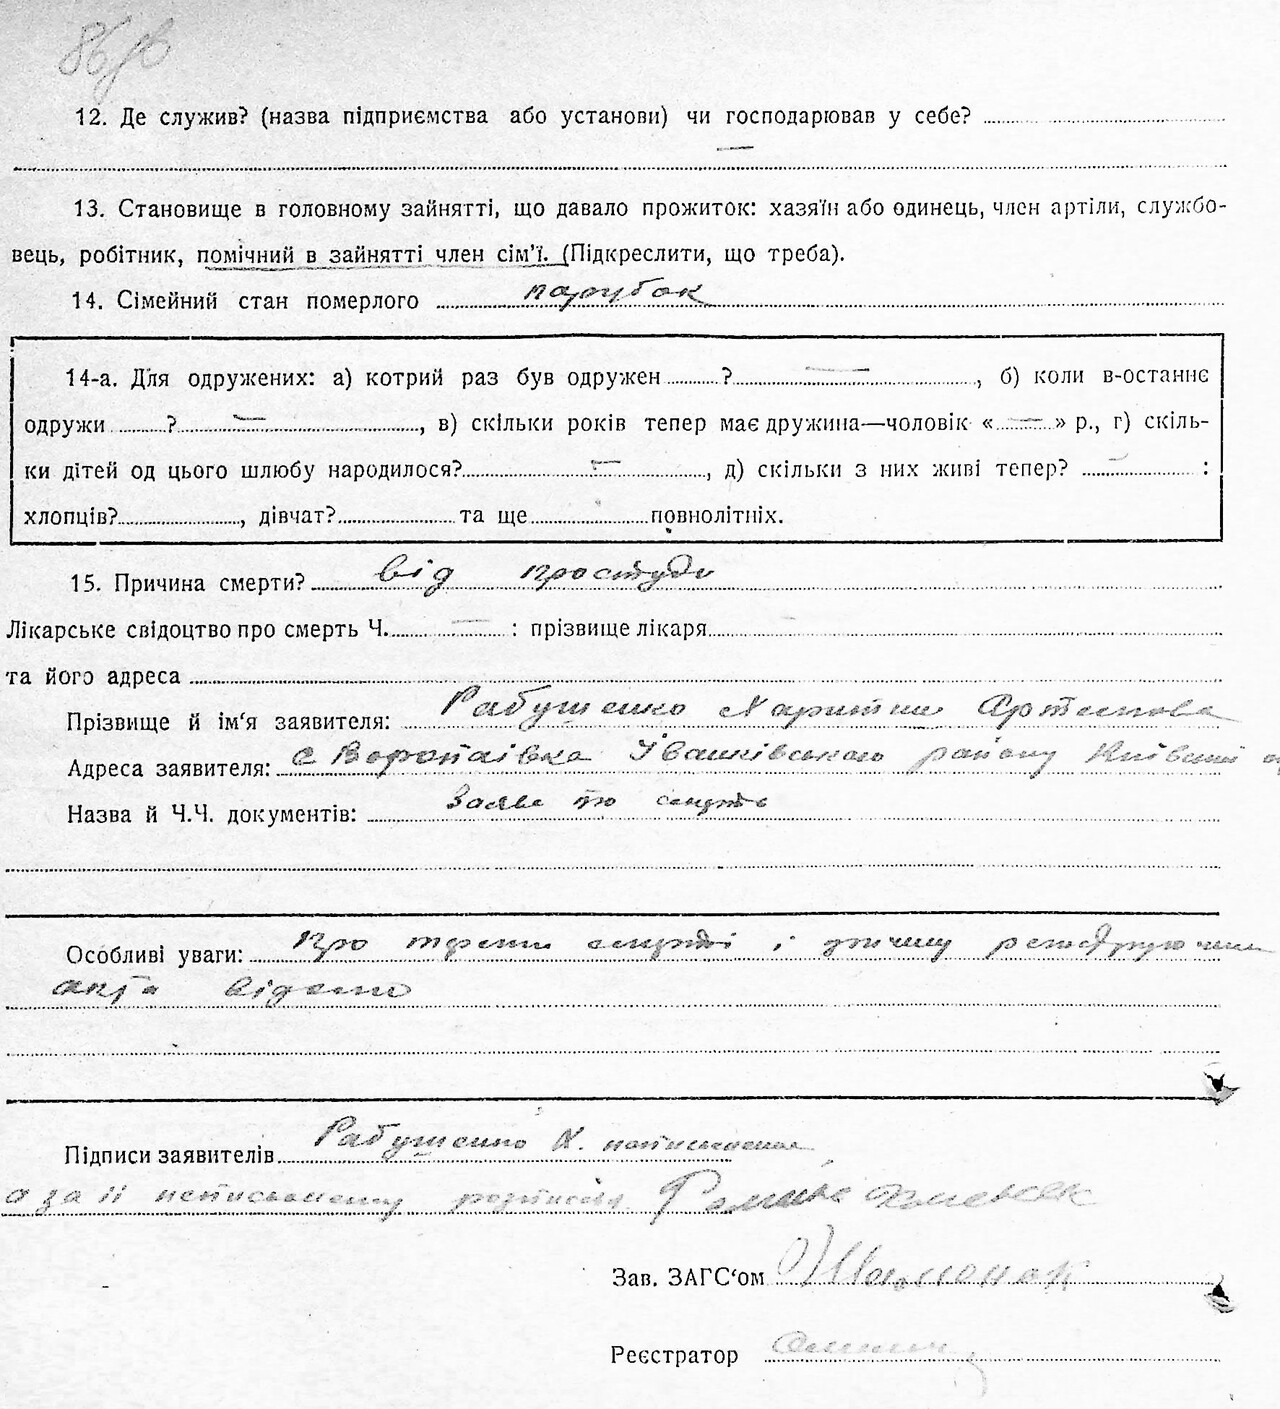 12. Де служив? (назва підприємства або установи) чи господарював у себе?
13. Становище в головному зайнятті, що давало прожиток: хазяїн або одинець, член артіли, службо-
вець, робітник, помічний в зайнятті член сім'ї. (Підкреслити, що треба).
14. Сімейний стан померлого парубок
14-а. Для одружених: а) котрий раз був одружен ? —, б) коли в-останнє
одружи ? —, в) скільки років тепер має дружина—чоловік «—» р., г) скіль-
ки дітей од цього шлюбу народилося? —, д) скільки з них живі тепер? — :
хлопців? , дівчат? та ще повнолітніх.
15. Причина смерти? від простуди
Лікарське свідоцтво про смерть Ч. — : прізвище лікаря
та його адреса
Прізвище й ім'я заявителя: Рабушенко
Адреса заявителя: с Воропаївка району Київської
Назва й Ч.Ч. документів: Заява по смерть
Особливі уваги: Про смерті і
акта відомо
Підписи заявителів Рабушенко Х. неписьменна,
а за її неписьменну розписався
Зав. ЗАГС'ом
Реєстратор